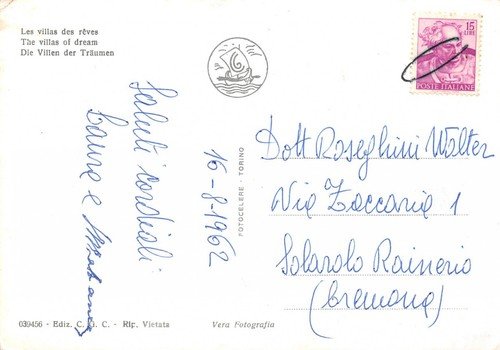 Les villas des rêves
The villas of dream
Die Villen der Träumen
15
LIRE
POSTE ITALIANE
Saluti cordiali
Laura e
16-8-1962
FOTOCELERE - TORINO
Dott Roseghini Walter
Via Zaccaria 1
Solarolo Rainerio
(Cremona)
039456 - Ediz. C. G. C. - Rip. Vietata
Vera Fotografia